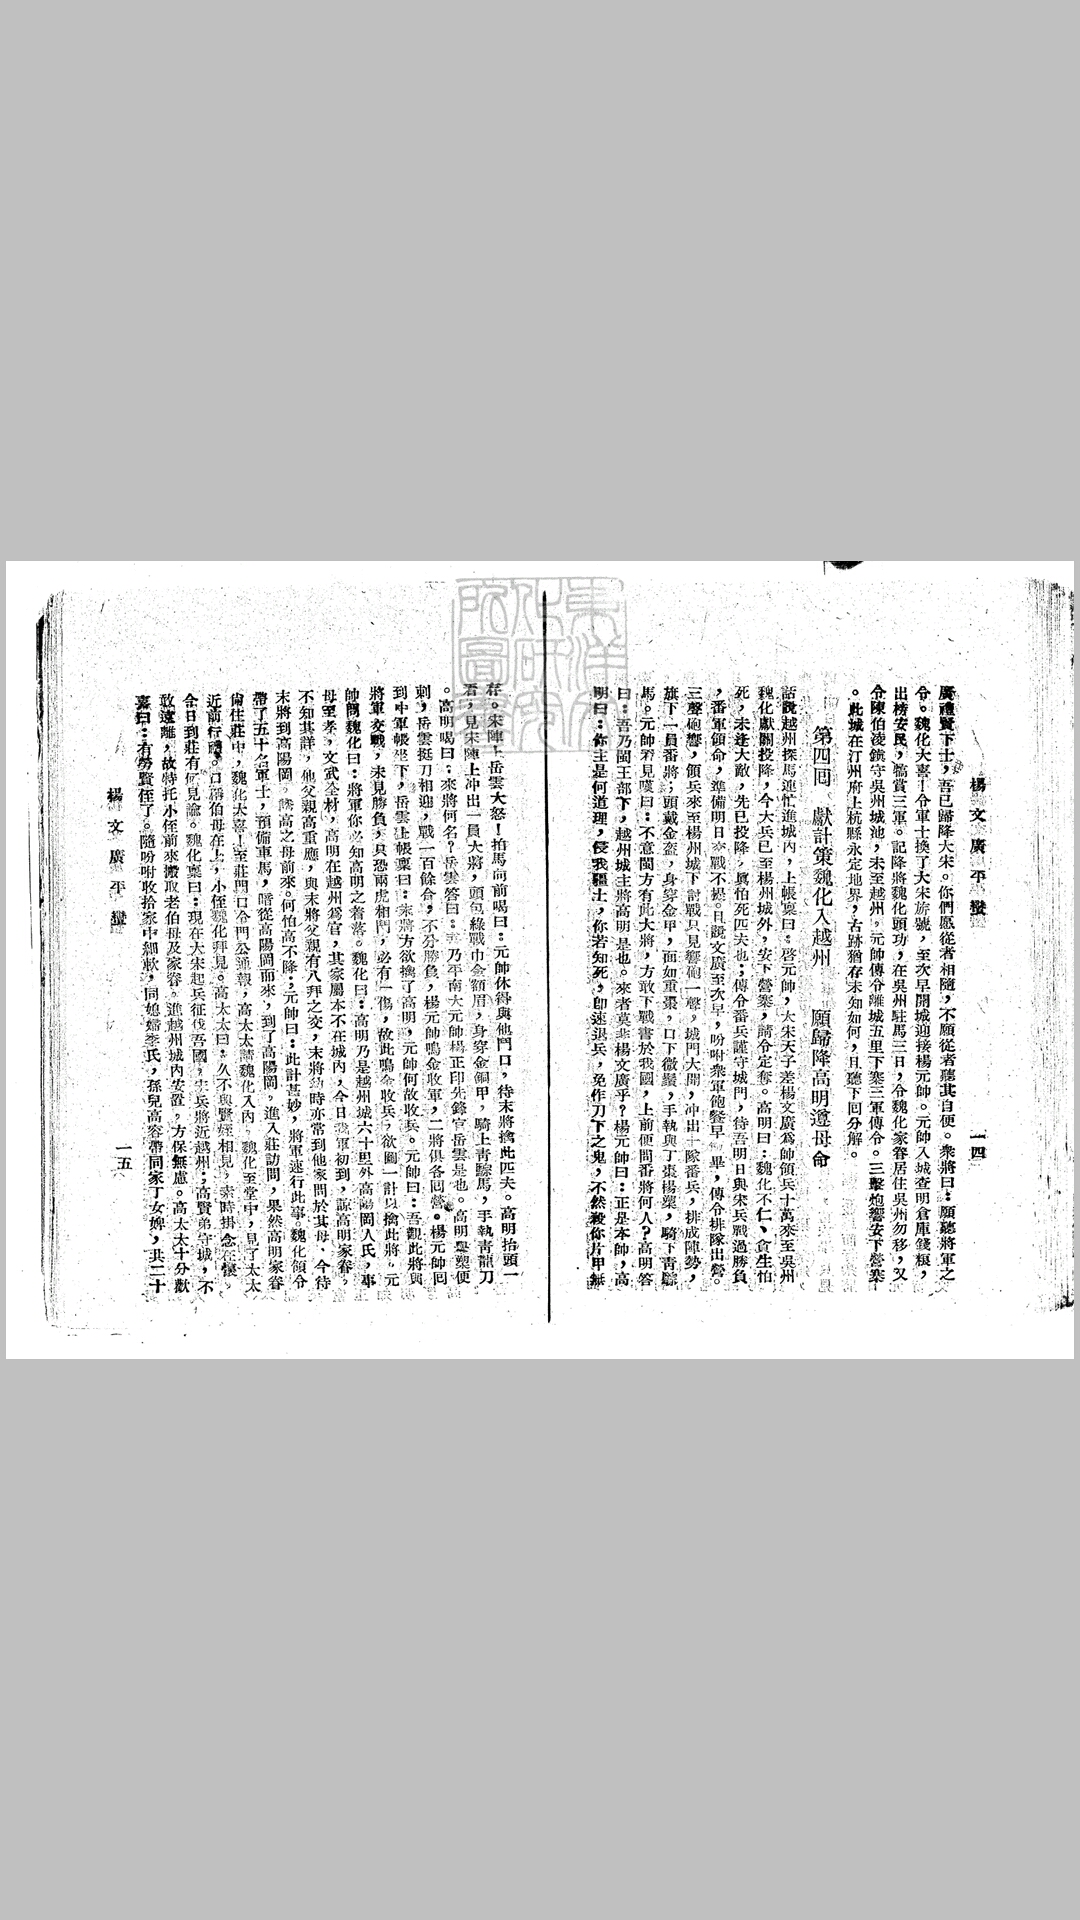 楊文廣平蠻
一四
廣禮賢下士，吾已歸降大宋。你們愿從者相隨，不願從者聽其自便。衆將曰：願聽將軍之
令。魏化大喜！令軍士換了大宋旂號，至次早開城迎接楊元帥。元帥入城查明倉庫錢糧，
出榜安民，犒賞三軍。記降將魏化頭功，在吳州駐馬三日，令魏化家眷居住吳州勿移，又
令陳伯凌鎮守吳州城池，未至越州。元帥傳令離城五里下寨三軍傳令。三擊炮響安下營寨
。此城在汀州府上杭縣永定地界，古跡猶存未知如何，且聽下回分解。
第四囘　獻計策魏化入越州　願歸降高明遵母命
話說越州探馬連忙進城內，上帳稟曰：啓元帥，大宋天子差楊文廣爲帥領兵十萬來至吳州
魏化獻關投降，今大兵已至楊州城外，安下營寨，請令定奪。高明曰：魏化不仁、貪生怕
死，未逢大敵，先已投降，眞怕死匹夫也；傳令番兵謹守城門，待吾明日與宋兵戰過勝負
，番軍領命，準備明日交戰不提。且說文廣至次早，吩咐衆軍飽餐早　畢，傳令排隊出營。
三聲砲響，領兵來至楊州城下討戰只見響砲一聲，城門大開，冲出一隊番兵，排成陣勢，
旗下一員番將；頭戴金盔，身穿金甲，面如重棗，口下微鬚，手執與丁棗楊槊，騎下青鬃
馬。元帥看見嘆曰：不意閩方有此大將，方敢下戰書於我國，上前便問番將何人？高明答
曰：吾乃閩王部下，越州城主將高明是也。來者莫非楊文廣乎？楊元帥曰：正是本帥，高
明曰：你主是何道理，侵我疆土，你若知死，卽速退兵，免作刀下之鬼，不然殺你片甲無
存。宋陣上岳雲大怒！拍馬向前喝曰：元帥休得與他鬥口，待末將擒此匹夫。高明抬頭一
看，見宋陣上冲出一員大將，頭包綠戰巾金額眉，身穿金鎖甲，騎上青鬃馬，手執青龍刀
。高明喝曰：來將何名？岳雲答曰：吾乃平南大元帥楊正印先鋒官岳雲是也。高明舉槊便
刺，岳雲挺刀相迎，戰一百餘合，不分勝負，楊元帥鳴金收軍，二將俱各囘營。楊元帥囘
到中軍帳坐下，岳雲上帳稟曰：末將方欲擒了高明，元帥何故收兵。元帥曰：吾觀此將與
將軍交戰，未見勝負，只恐兩虎相鬥，必有一傷，故此鳴金收兵，欲圖一計以擒此將。元
帥問魏化曰：將軍你必知高明之着落。魏化曰：高明乃是越州城六十里外高陽岡人氏，事
母至孝，文武全材，高明在越州爲官，其家屬本不在城內，今日我軍初到，諒高明家眷。
不知其詳，他父親高重應，與末將父親有八拜之交，末將幼時亦常到他家問於其母、今待
末將到高陽岡，騙高之母前來。何怕高不降；元帥曰：此計甚妙，將軍速行此事。魏化領令
帶了五十名軍士，預備車馬，暗從高陽岡而來，到了高陽岡。進入莊訪問，果然高明家眷
尙住莊中，魏化大喜！至莊門口令門公進報，高太太請魏化入內，魏化至堂中，見了太太
近前行禮。口稱伯母在上，小侄魏化拜見。高太太曰：久不與賢姪相見，未時掛念在懷。
今日到莊有何見諭。魏化稟曰：現在大宋起兵征伐吾國，宋兵將近越州；高賢弟守城，不
敢遠離，故特托小侄前來搬取老伯母及家眷。進越州城內安置，方保無慮。高太太十分歡
喜曰：有勞賢侄了。隨吩咐收拾家中細軟，同媳婦李氏，孫兒高容帶同家丁女婢，共二十
楊文廣平蠻
一五